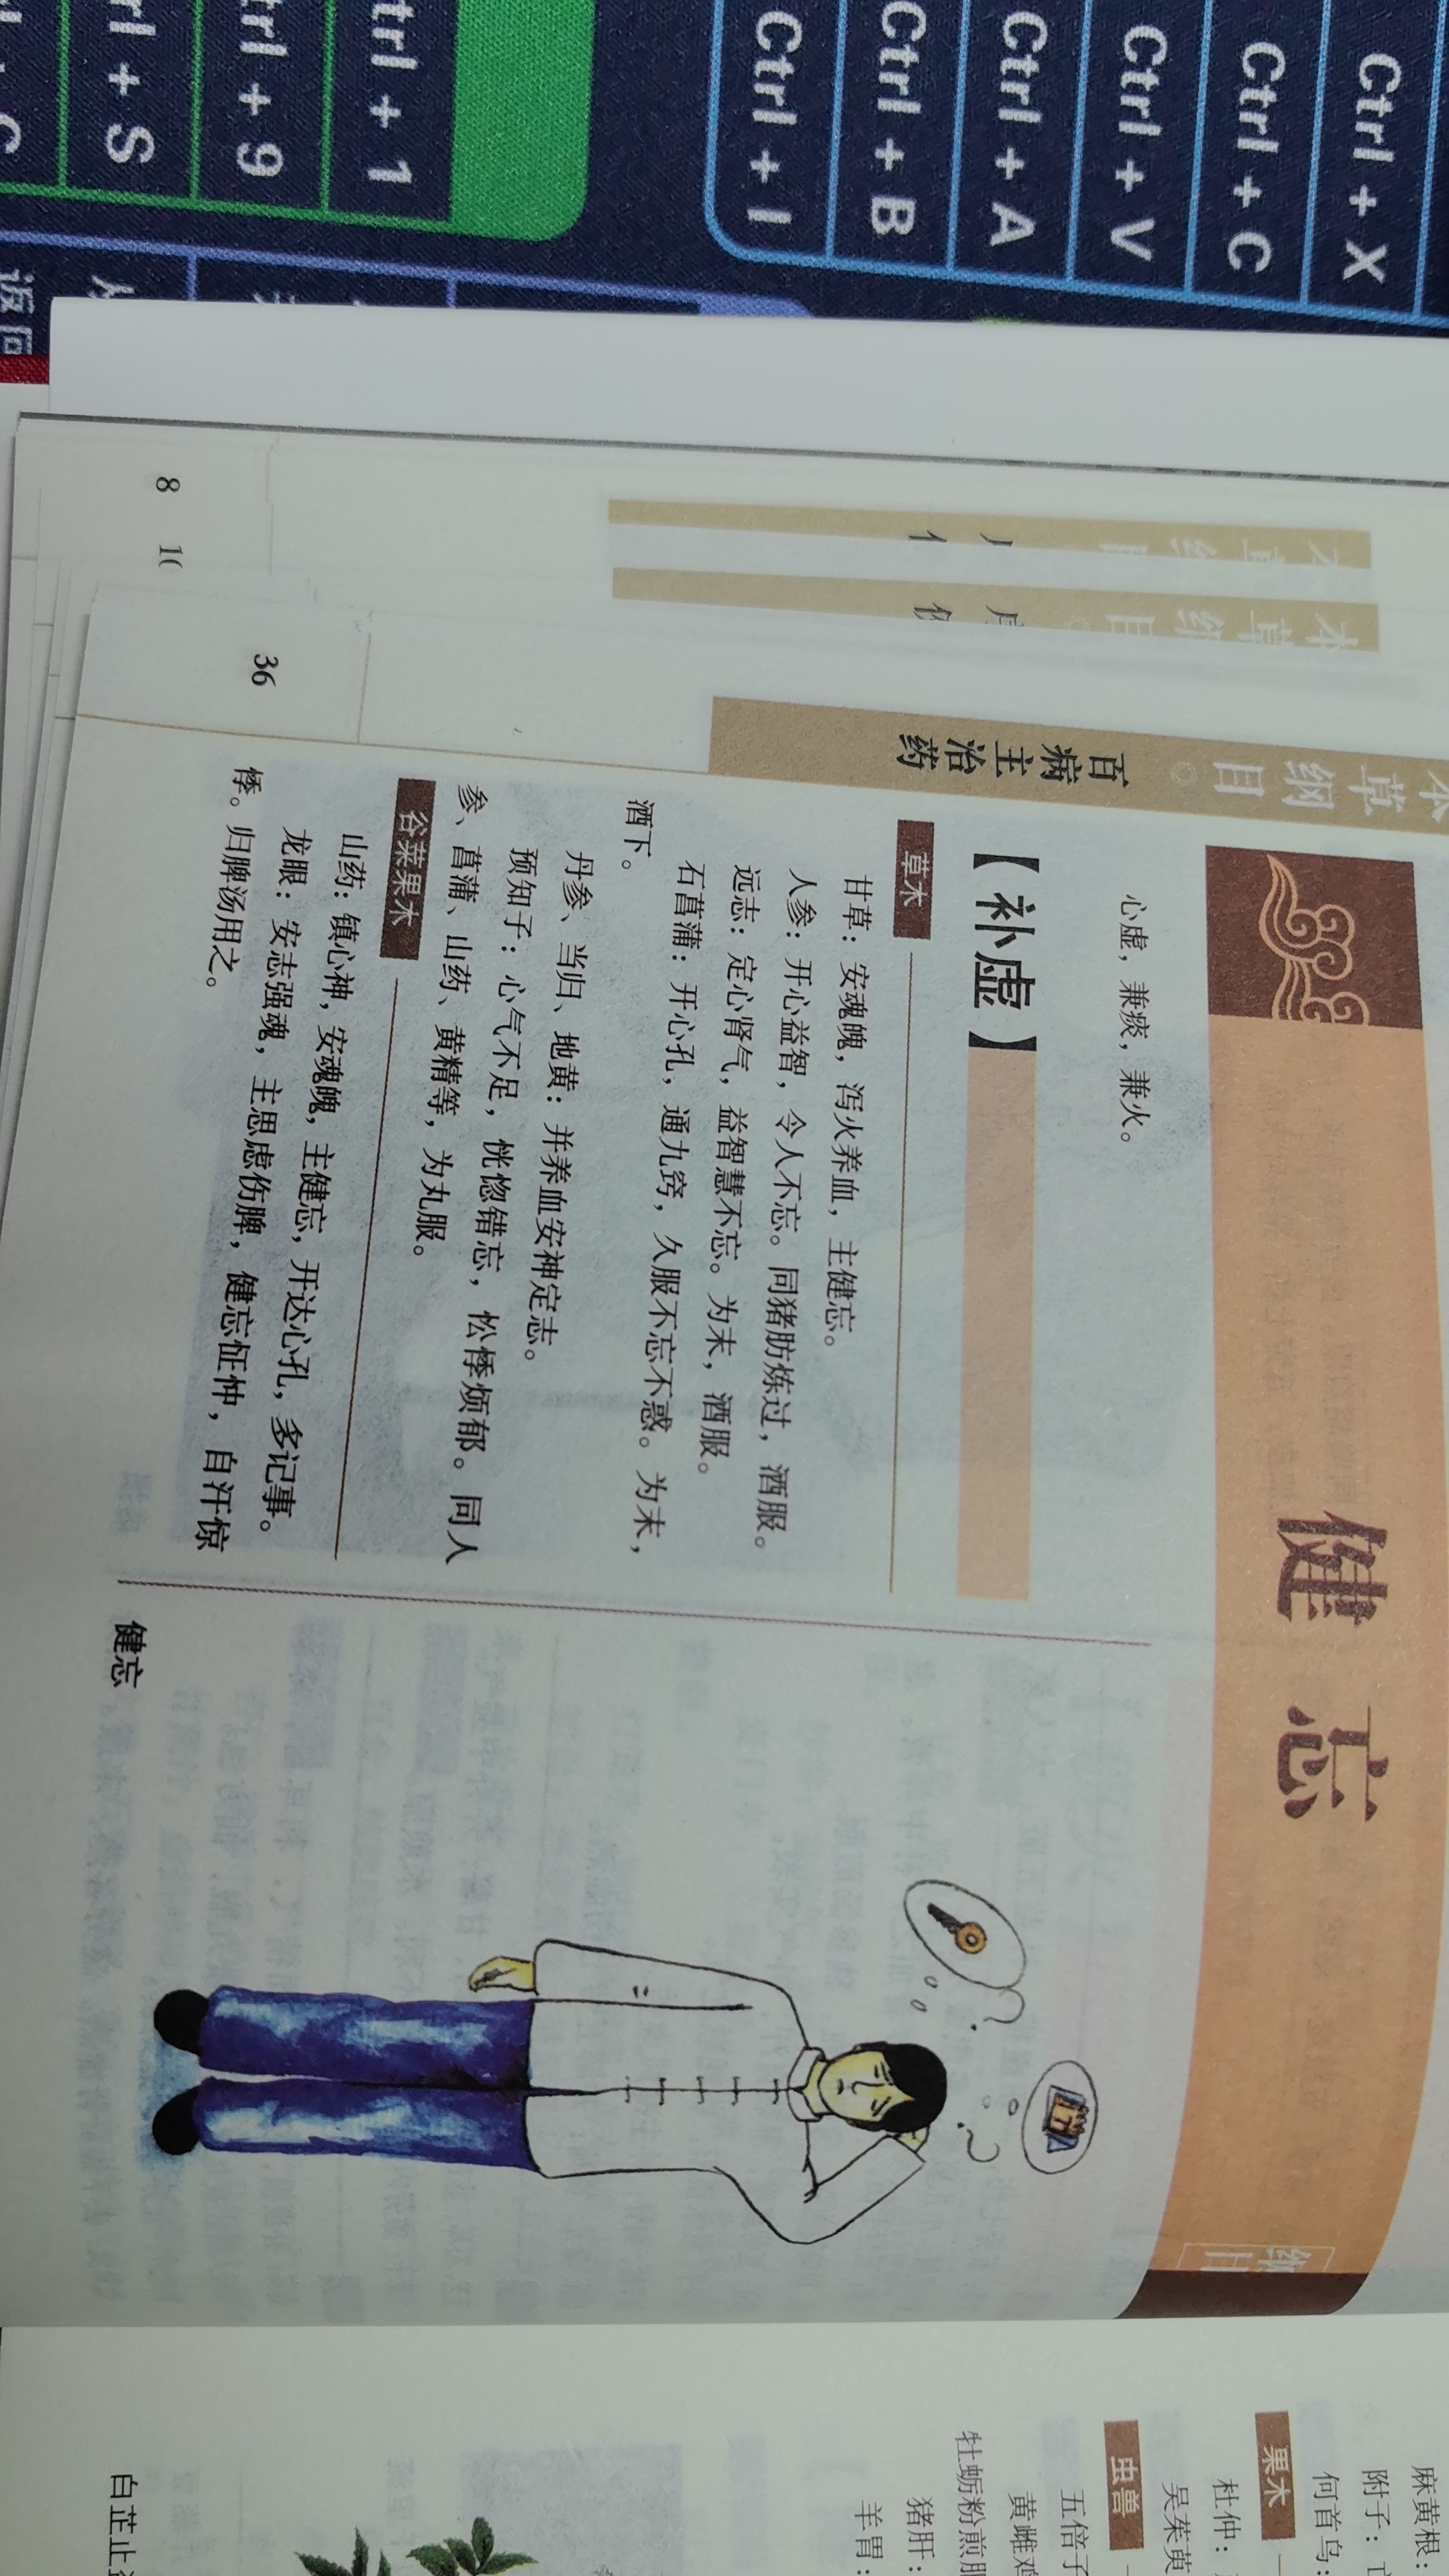 Ctrl + X
Ctrl + C
Ctrl + V
Ctrl + A
Ctrl + B
Ctrl + I
trl + 1
trl + 9
rl + S
返回
8
10
36
本草纲目
百病主治药
健忘
心虚，兼痰，兼火。
【补虚】
草木
甘草：安魂魄，泻火养血，主健忘。
人参：开心益智，令人不忘。同猪肪炼过，酒服。
远志：定心肾气，益智慧不忘。为末，酒服。
石菖蒲：开心孔，通九窍，久服不忘不惑。为末，
酒下。
丹参、当归、地黄：并养血安神定志。
预知子：心气不足，恍惚错忘，忪悸烦郁。同人
参、菖蒲、山药、黄精等，为丸服。
谷菜果木
山药：镇心神，安魂魄，主健忘，开达心孔，多记事。
龙眼：安志强魂，主思虑伤脾，健忘怔忡，自汗惊
悸。归脾汤用之。
健忘
麻黄根：
附子：
何首乌：
果木
杜仲：
吴茱萸
虫兽
五倍子
黄雌鸡
牡蛎粉煎服
猪肝：
羊胃：
白芷止